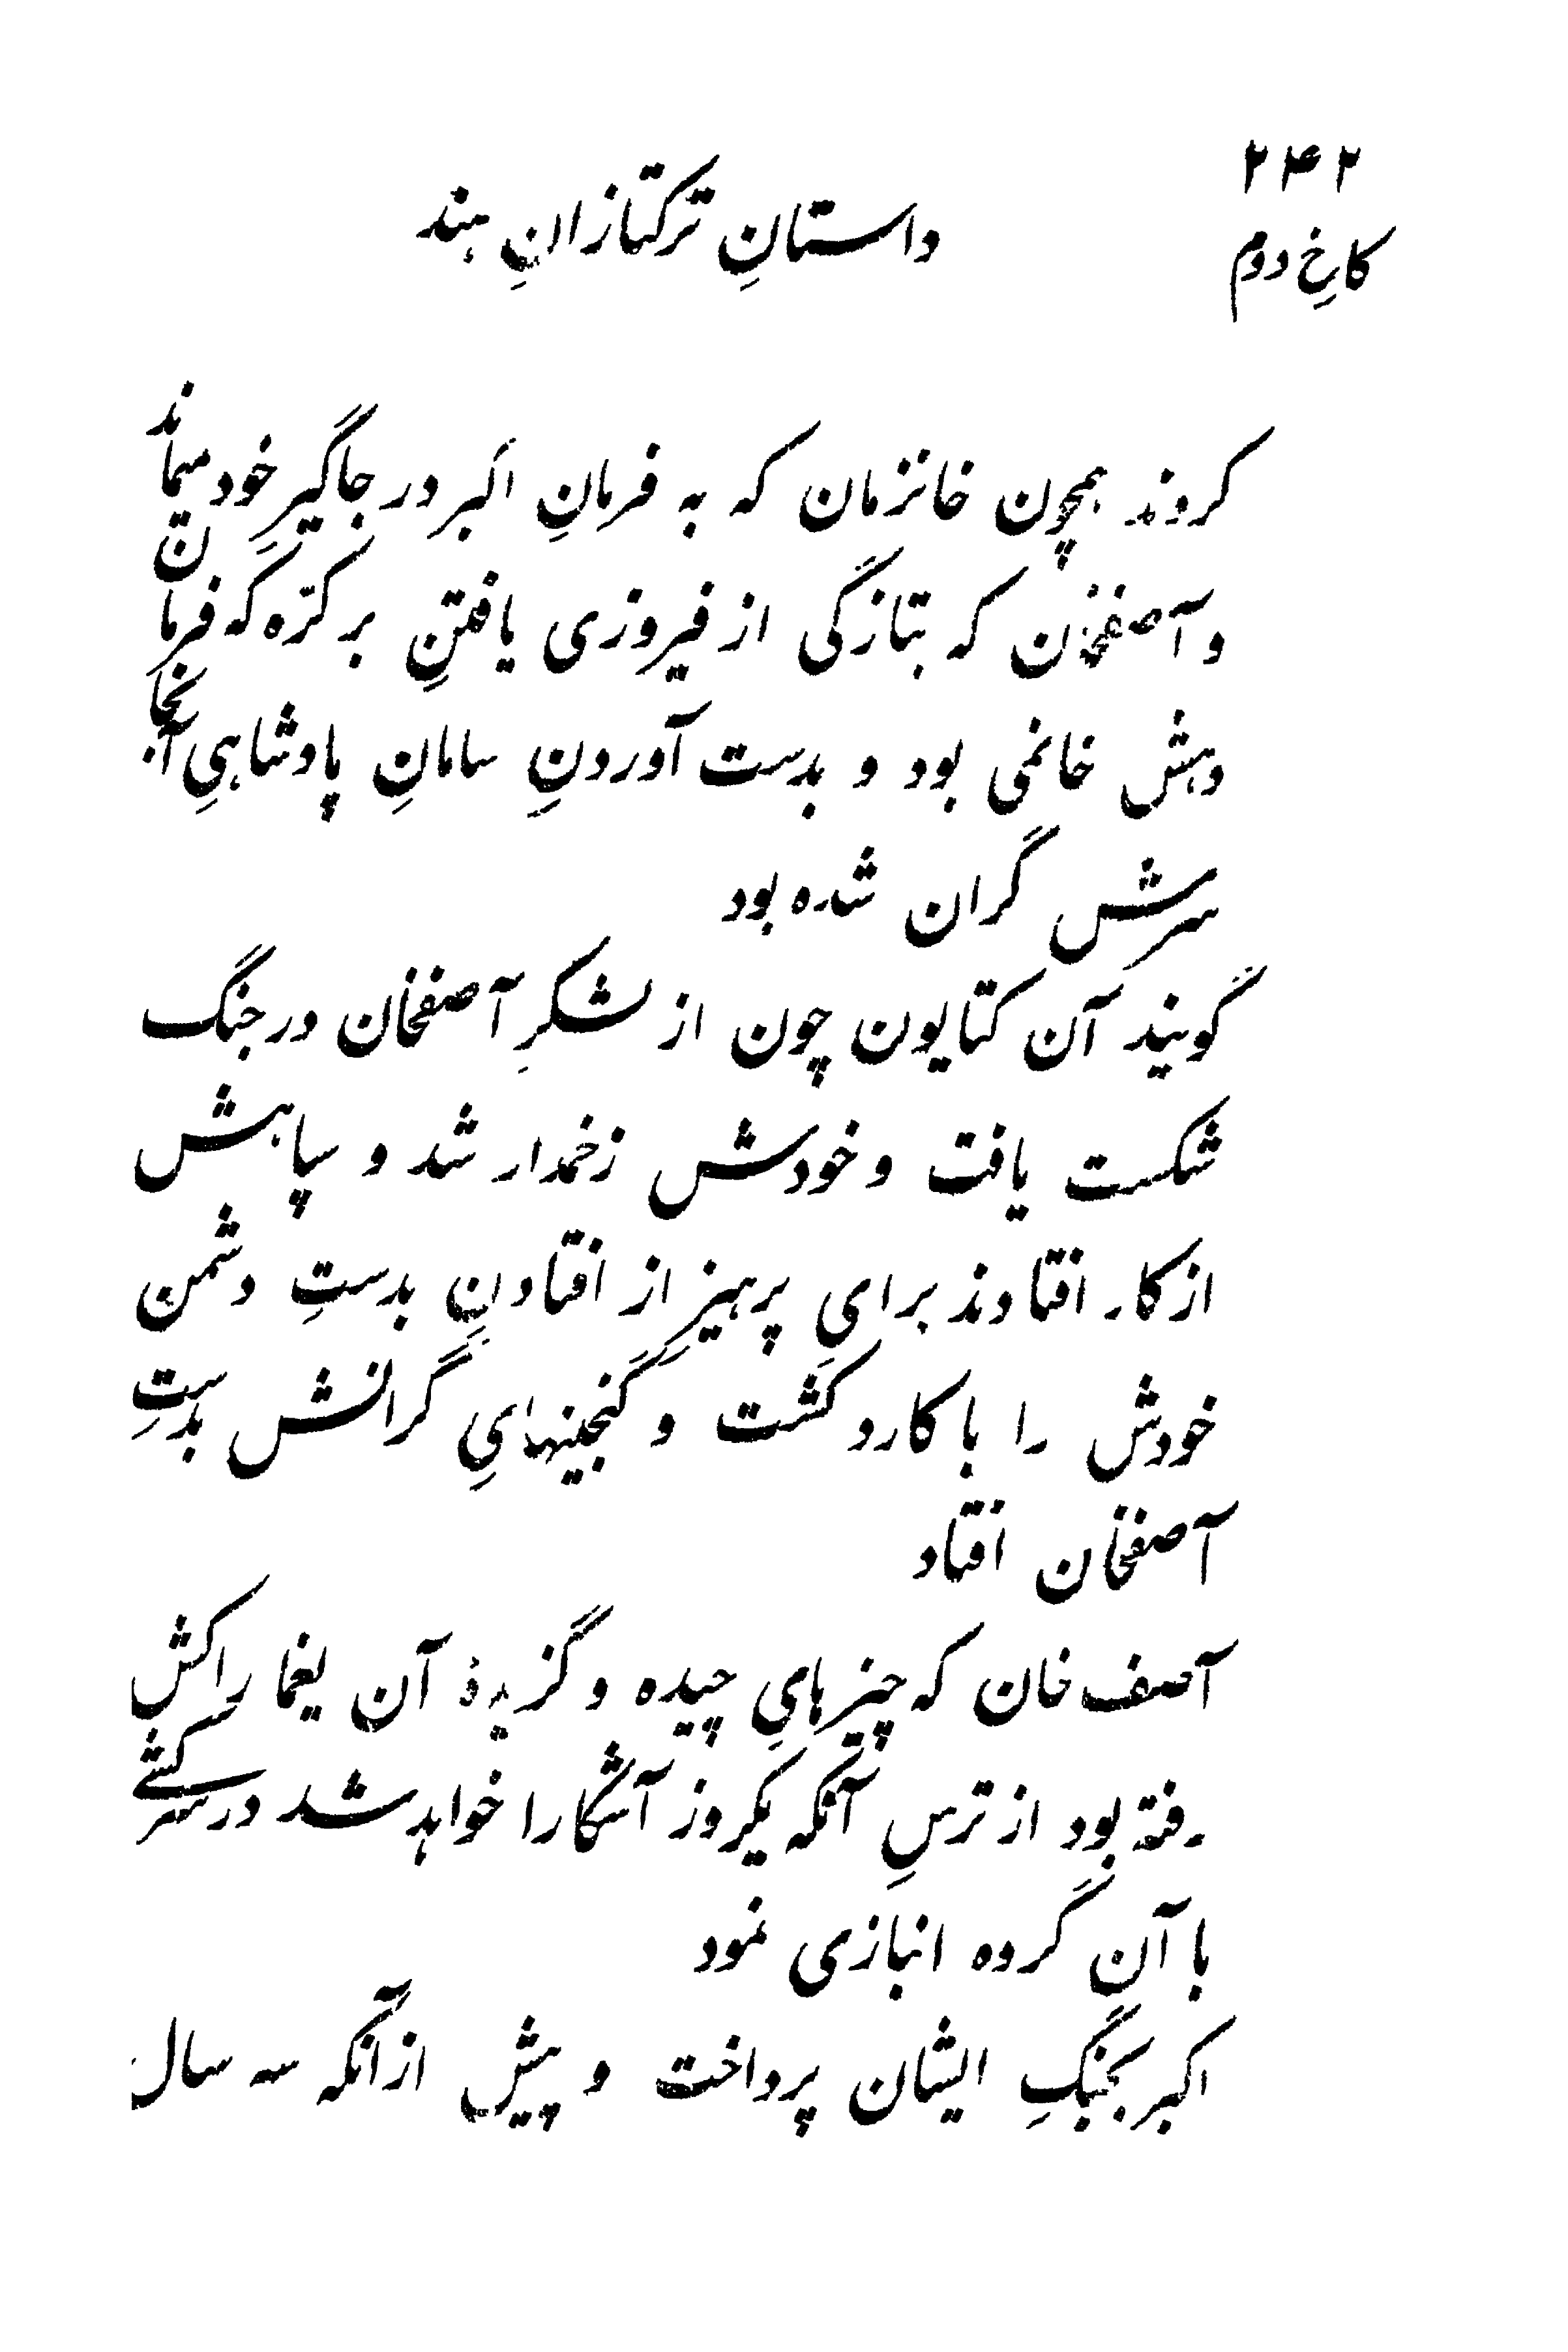 ۲۴۲
داستانِ ترکتازانِ هند
کاخِ دوم
کردند همچون خانزمان که به فرمانِ اکبر در جاگیرِ خود میماند
و آصفخان که بتازگی از فیروزی یافتنِ بر کرّه که فرمان
دهش خانمی بود و بدست آوردنِ سامانِ پادشاهیِ آنجا
سرش گران شده بود
گویند آن کتایون چون از لشکرِ آصفخان در جنگ
شکست یافت و خودش زخمدار شد و سپاهش
از کار افتادند برایِ پرهیزِ از افتادنِ بدستِ دشمن
خودش را با کارد کشت و گنجینهایِ گرانش بدستِ
آصفخان افتاد
آصف خان که چیزهایِ چیده و گزیدهٔ آن یغما را کش
رفته بود از ترسِ آنکه یکروز آشکارا خواهد شد در سرکشے
با آن گروه انبازی نمود
اکبر بجنگِ ایشان پرداخت و پیش از آنکه سه سال